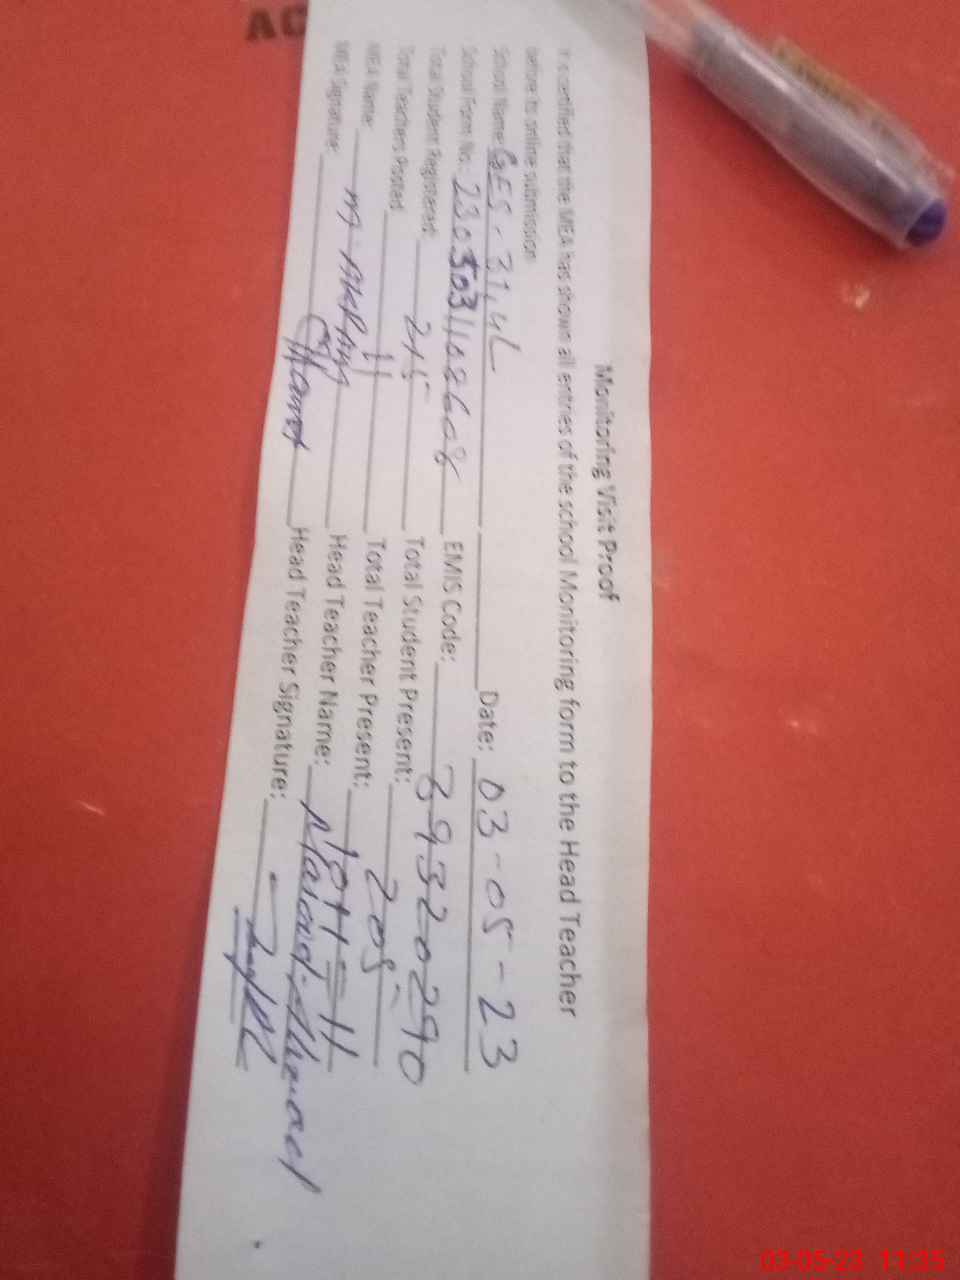 AC
Monitoring Visit Proof
It is certified that the MEA has shown all entries of the school Monitoring form to the Head Teacher
before its online submission
School Name: GES - 31,4L Date: 03-05-23
School Form No: 2305031108608 EMIS Code: 39320290
Total Student Registered: 215 Total Student Present: 205
Total Teachers Posted 11 Total Teacher Present: 10+1=11
MEA Name: M. AKRAM Head Teacher Name: Ahmad
MEA Signature: Head Teacher Signature:
03-05-23 11:35